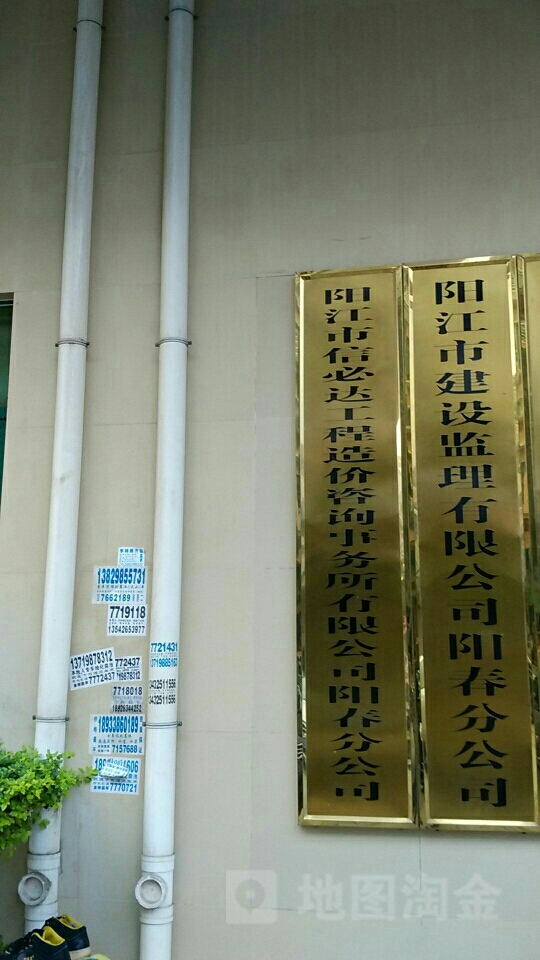 阳江市建设监理有限公司阳春分公司
阳江市信必达工程造价咨询事务所有限公司阳春分公司
13829855731
7662189
7719118
13542653977
13719878312
7772437
772437
7718018
7721431
13719885162
18933860189
7157688
7770721
地图淘金